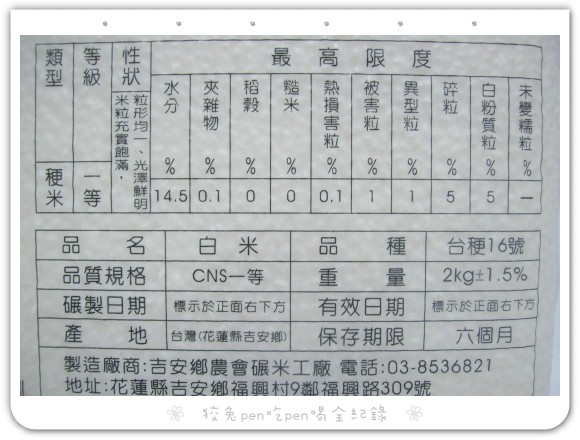 類型 等級 性狀 最高限度
粒形均一、光澤鮮明
米粒充實飽滿，
水分 % 夾雜物 % 稻穀 % 糙米 % 熱損害粒 % 被害粒 % 異型粒 % 碎粒 % 白粉質粒 % 未變糯粒 %
稉米 一等 14.5 0.1 0 0 0.1 1 1 5 5 —
品名 白米 品種 台稉16號
品質規格 CNS一等 重量 2kg±1.5%
碾製日期 標示於正面右下方 有效日期 標示於正面右下方
產地 台灣(花蓮縣吉安鄉) 保存期限 六個月
製造廠商:吉安鄉農會碾米工廠 電話:03-8536821
地址:花蓮縣吉安鄉福興村9鄰福興路309號
狡兔pen吃pen喝全紀錄